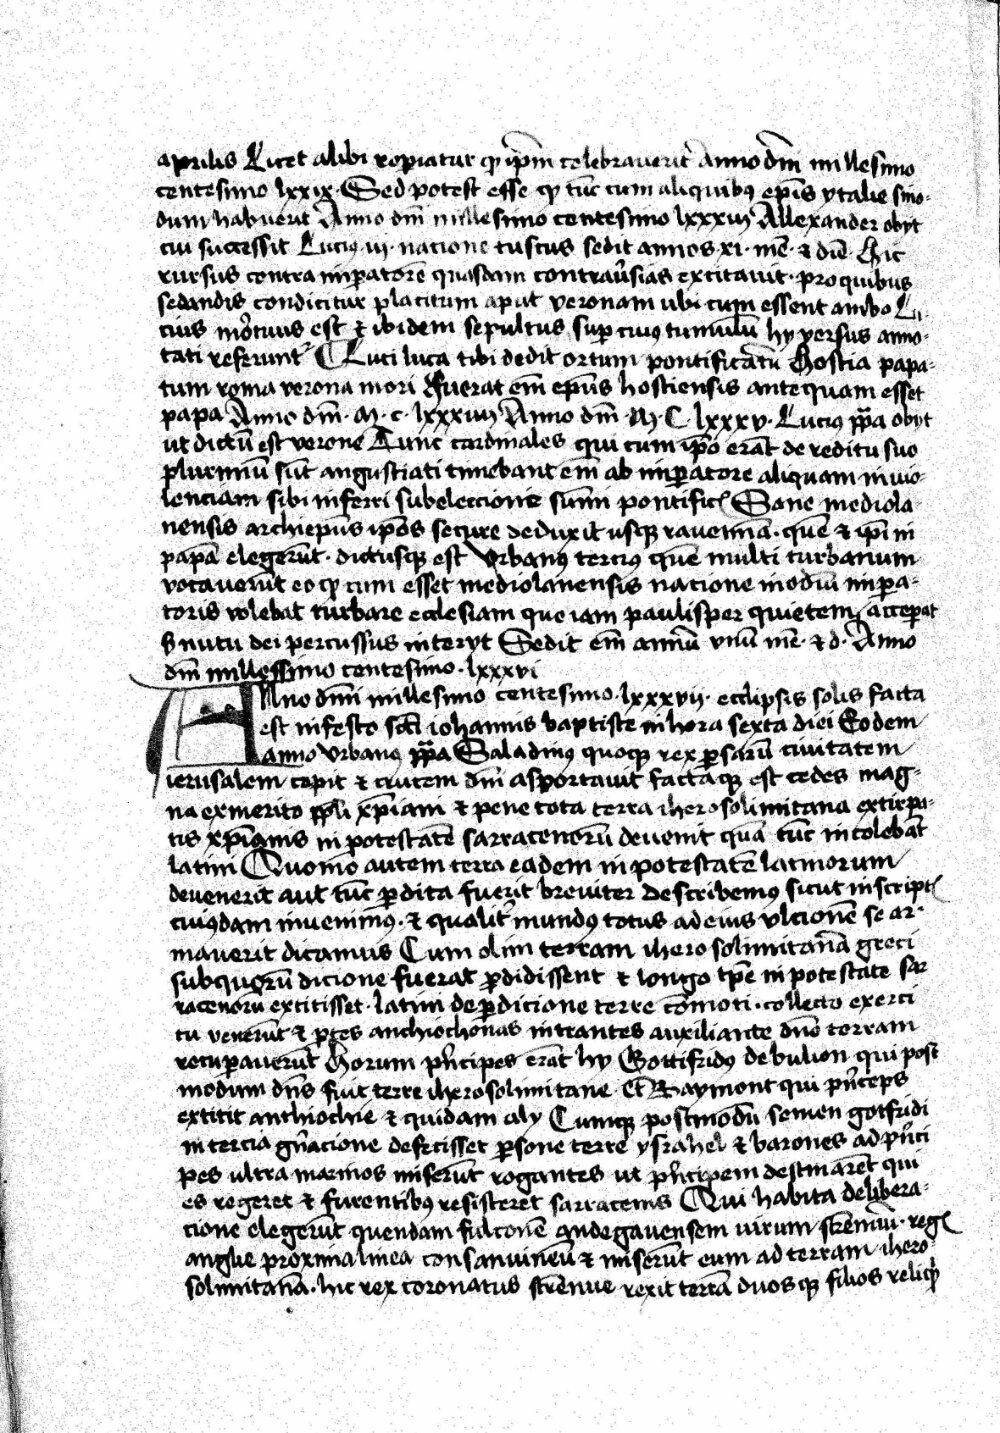 aprilis Licet alibi copiatur qꝫ ip̄m celebrauerit Anno dn̄i millesimo
centesimo lxxix · Sed potest esse qꝫ tūc cum aliquibꝰ ep̄is ytalie sino-
dum habuerit Anno dn̄i millesimo centesimo lxxxiiij Allexander obijt
cui successit Lucius iij · natione tuscus sedit annos xi · mē · & diē · Hic
rursus contra imꝑatorē quasdam contrau̓sias excitauit · pro quibus
sedandis condicitur placitum aput veronam ubi cum essent ambo Lu-
cius mortuus est & ibidem sepultus suꝑ cuiꝰ tumulū hij versus anno-
tati referunt̄ Luci luca tibi dedit ortum pontificatū Hostia papa-
tum roma verona mori Fuerat em̄ ep̄us hostiensis antequam esset
papa Anno dn̄i · M · c · lxxxiiij Anno dn̄i · M C lxxxv · Lucius pp̄a obijt
ut dictū est verone Tunc cardinales qui cum ip̄o erāt de reditu suo
plurimū sūt angustiati timebant em̄ ab imꝑatore aliquam in uio-
lenciam sibi inferri sub eleccione sūmi pontific̄ Sane mediola-
nensis archiep̄us ip̄os secure deduxit usqꝫ rauennā · quē & ip̄i in
papā elegerūt · dictusqꝫ est Vrbanꝰ tercius quē multi turbanum
vocauerūt eo qꝫ cum esset mediolanensis natione in odiū imꝑa-
toris volebat turbare ecclesiam que iam paulisper quietem acceperat
S nutu dei percussus interijt Sedit em̄ annū vnū mē · & d · Anno
dn̄i millessimo centesimo · lxxxvi
Anno dn̄i millesimo centesimo · lxxxvij · ecclipsis solis facta
est in festo sc̄i iohannis baptiste in hora sexta diei Eodem
anno Vrbanꝰ pp̄a Saladinꝰ quoqꝫ rex ꝑsarū ciuitatem
ierusalem cepit & crucem dn̄i asportauit factaqꝫ est cedes mag-
na exmerito pp̄li xp̄iani & pene tota terra iherosolimitana extirpa-
tis xp̄ianis in potestatē sarracenorū deuenit quā tūc incolebāt
latini Quomō autem terra eadem in potestatē latinorum
deuenerit aut tūc ꝑdita fuerit breuiter describemꝰ sicut in script̄
cuiꝰdam inuenimꝰ · & qualit̓ mundꝰ totus ad eius vlcionē se ar-
mauerit dicamus Cum olim terram iherosolimitanā greci
sub quorū dicione fuerat ꝑdidissent & longo tp̄e in potestate sar
racenorū extitisset · latini de ꝑdicione terre cōmoti · collecto exerci
tu venerūt & ꝑtes anchiochonas intrantes auxiliante dn̄o terram
recuꝑauerūt Horum p̓ncipes erāt hij Gottifridꝰ de bulion qui post
modum dn̄s fuit terre iherosolimitane · Et Raymont qui p̓nceps
extitit anthiochie & quidam alij Cumqꝫ postmodū semen gotfridi
in tercia gn̄acione defecisset ꝑsone terre ysrahel & barones ad p̓nci
pes ultra marinos miserūt rogantes ut p̓ncipem destinarēt qui
eos regeret & furentibꝰ resisteret sarracenis Qui habita delibera-
cione elegerūt quendam fulconē andegauensem virum strēnuū · reḡ
anglie proxima linea consanwineū & miserūt eum ad terram ihero-
solimitanā · hic rex coronatus strēnue rexit terrā duosqꝫ filios reliq̄t